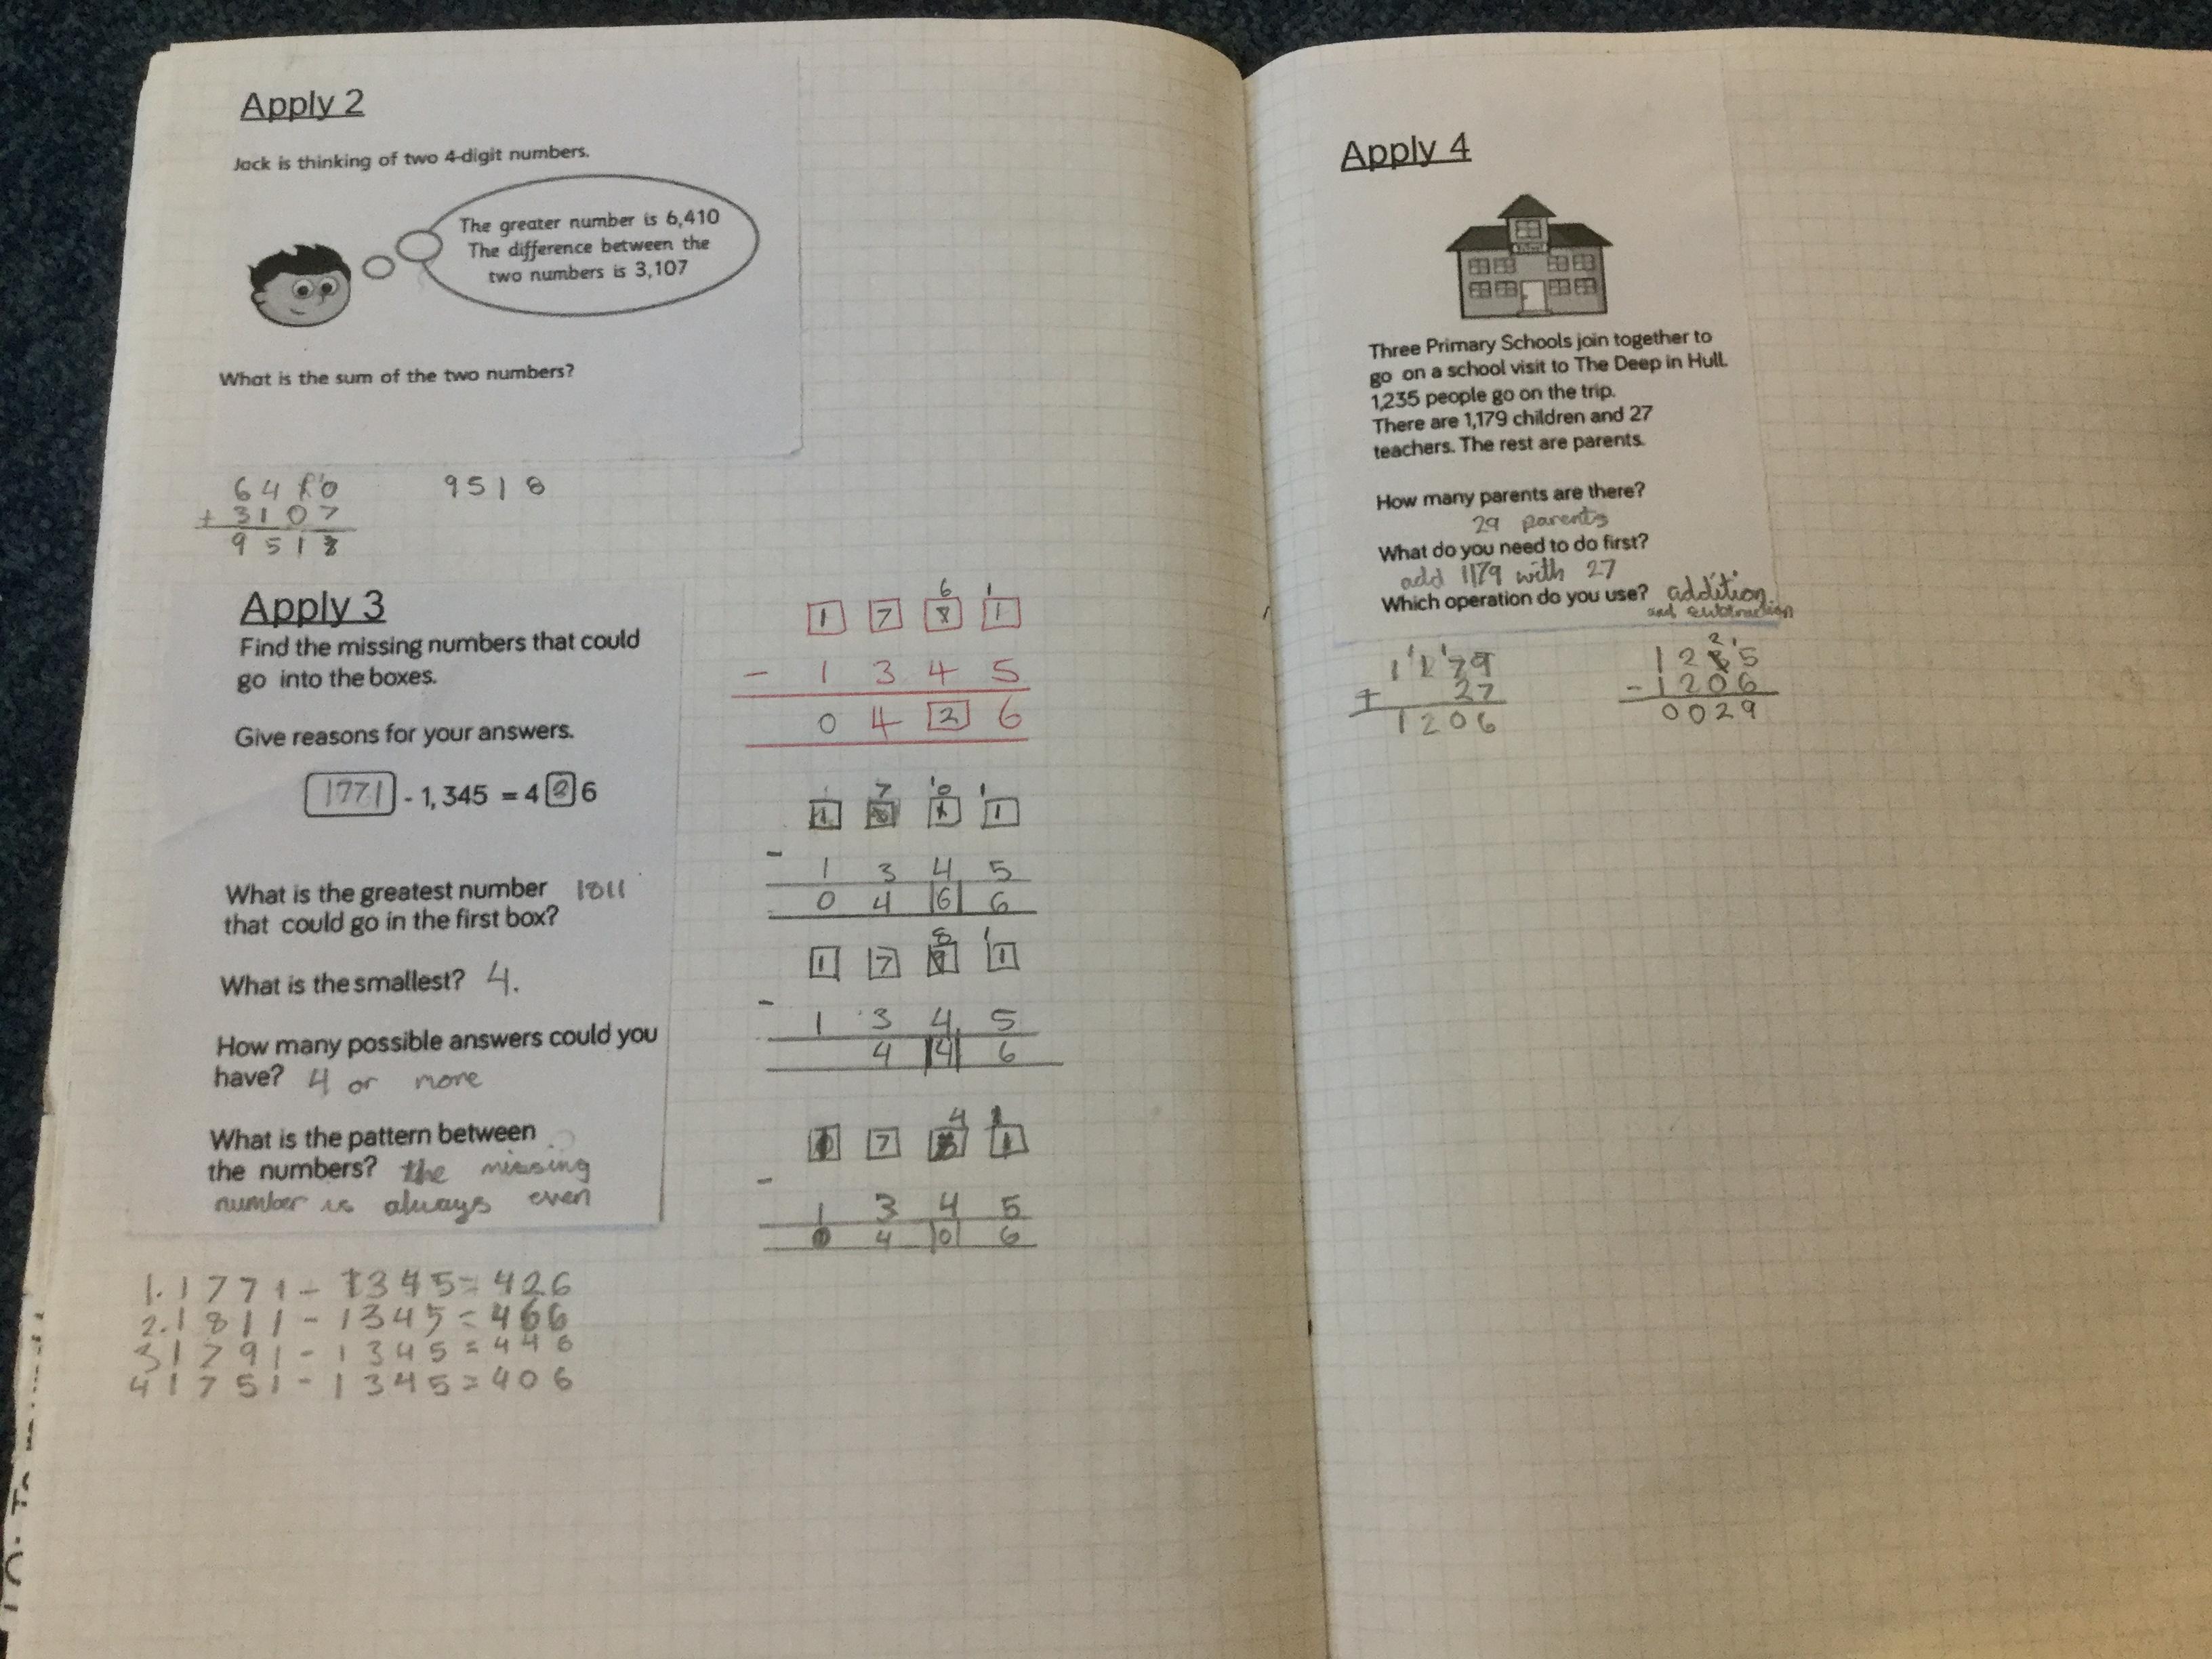 Apply 2
Jack is thinking of two 4-digit numbers.
The greater number is 6,410
The difference between the
two numbers is 3,107
What is the sum of the two numbers?
6 4 1 0
+ 3 1 0 7
9 5 1 8
9 5 1 8
Apply 3
Find the missing numbers that could
go into the boxes.
Give reasons for your answers.
1771 - 1,345 = 4 2 6
What is the greatest number 1811
that could go in the first box?
What is the smallest? 4.
How many possible answers could you
have? 4 or more
What is the pattern between
the numbers? the missing
number is always even
1. 1 7 7 1 - 1 3 4 5 = 4 2 6
2. 1 8 1 1 - 1 3 4 5 = 4 6 6
3 1 7 9 1 - 1 3 4 5 = 4 4 6
4 1 7 5 1 - 1 3 4 5 = 4 0 6
6 1
1 7 1
- 1 3 4 5
0 4 2 6
7 10 1
1 1 1
- 1 3 4 5
0 4 6 6
8 1
1 7 1
- 1 3 4 5
4 4 6
4
7 1
- 1 3 4 5
0 4 0 6
Apply 4
Three Primary Schools join together to
go on a school visit to The Deep in Hull.
1,235 people go on the trip.
There are 1,179 children and 27
teachers. The rest are parents.
How many parents are there?
29 parents
What do you need to do first?
add 1179 with 27
Which operation do you use? addition
and subtraction
1 1 7 9
+ 2 7
1 2 0 6
2 1
1 2 3 5
- 1 2 0 6
0 0 2 9